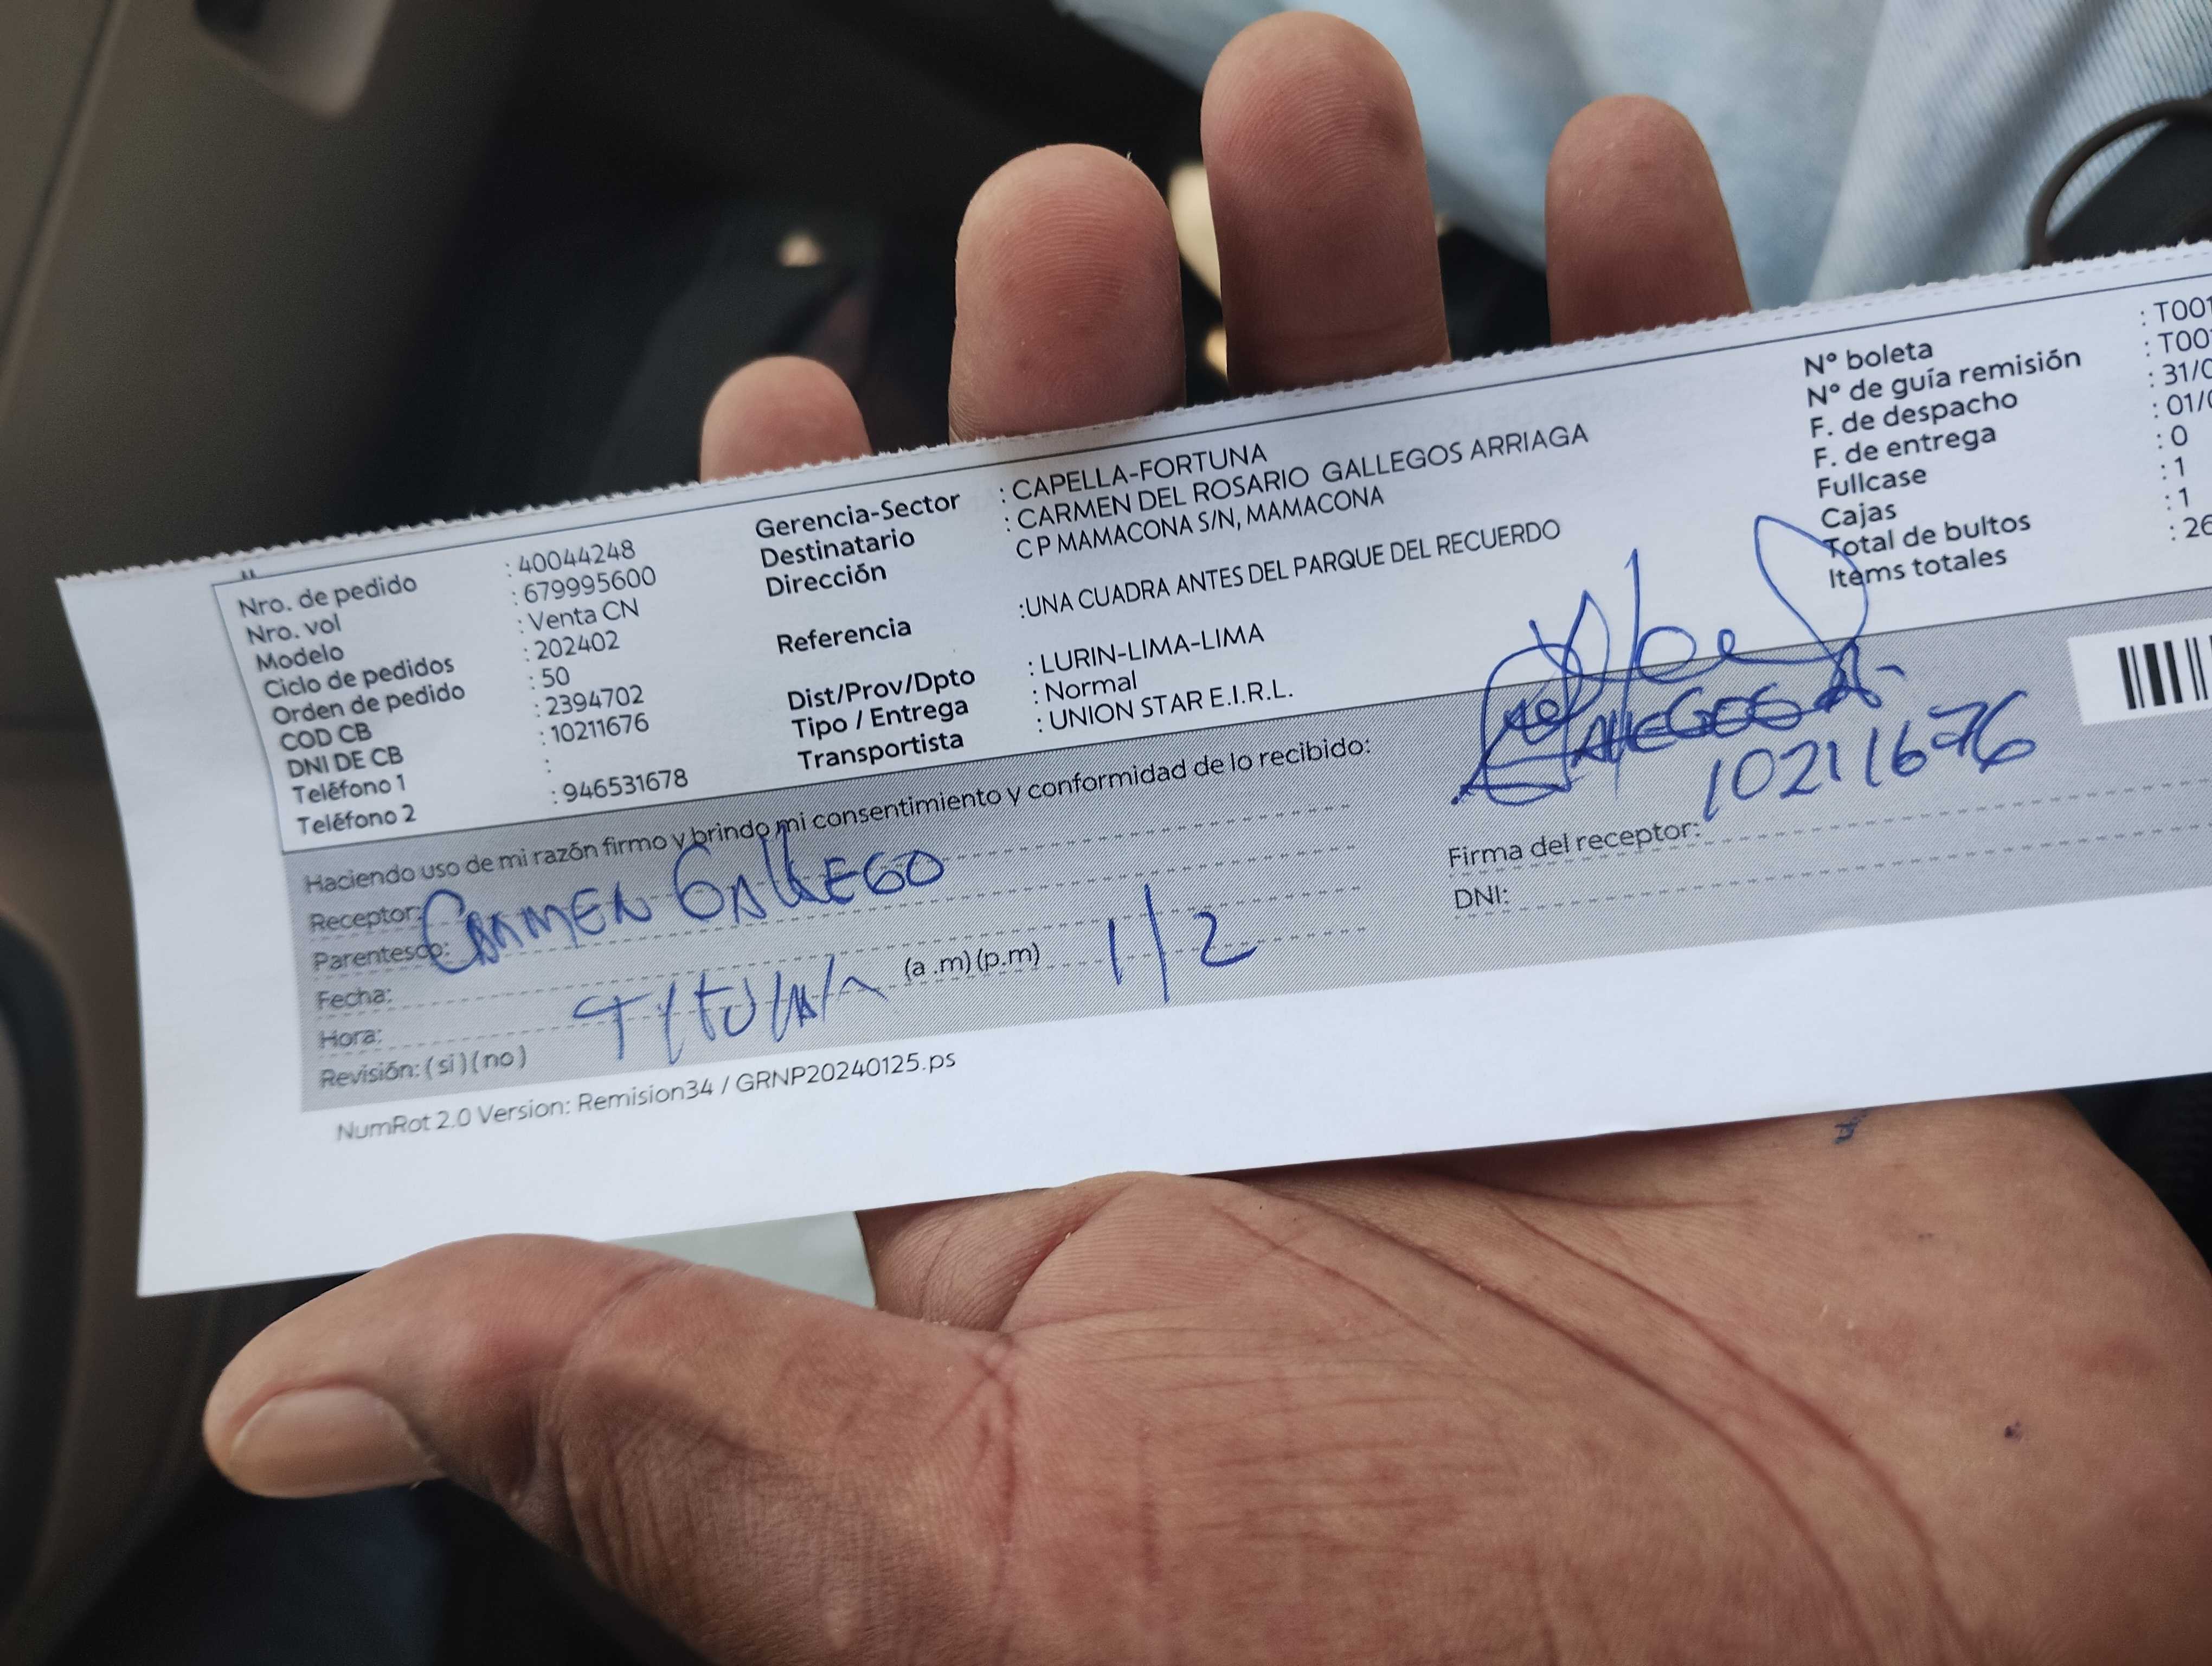 Nro. de pedido : 40044248
Nro. vol : 679995600
Modelo : Venta CN
Ciclo de pedidos : 202402
Orden de pedido : 50
COD CB : 2394702
DNI DE CB : 10211676
Teléfono 1 :
Teléfono 2 : 946531678
Gerencia-Sector : CAPELLA-FORTUNA
Destinatario : CARMEN DEL ROSARIO GALLEGOS ARRIAGA
Dirección C P MAMACONA S/N, MAMACONA
Referencia :UNA CUADRA ANTES DEL PARQUE DEL RECUERDO
Dist/Prov/Dpto : LURIN-LIMA-LIMA
Tipo / Entrega : Normal
Transportista : UNION STAR E.I.R.L.
Nº boleta : T001
Nº de guía remisión : T00
F. de despacho : 31/0
F. de entrega : 01/0
Fullcase : 0
Cajas : 1
Total de bultos : 1
Items totales : 26
Haciendo uso de mi razón firmo y brindo mi consentimiento y conformidad de lo recibido:
Receptor: CARMEN GALLEGO
Parentesco:
Fecha:
Hora: (a .m) (p.m) 1/2
Revisión: ( si ) ( no ) TITULAR
GALLEGOS A.
10211676
Firma del receptor:
DNI:
NumRot 2.0 Version: Remision34 / GRNP20240125.ps